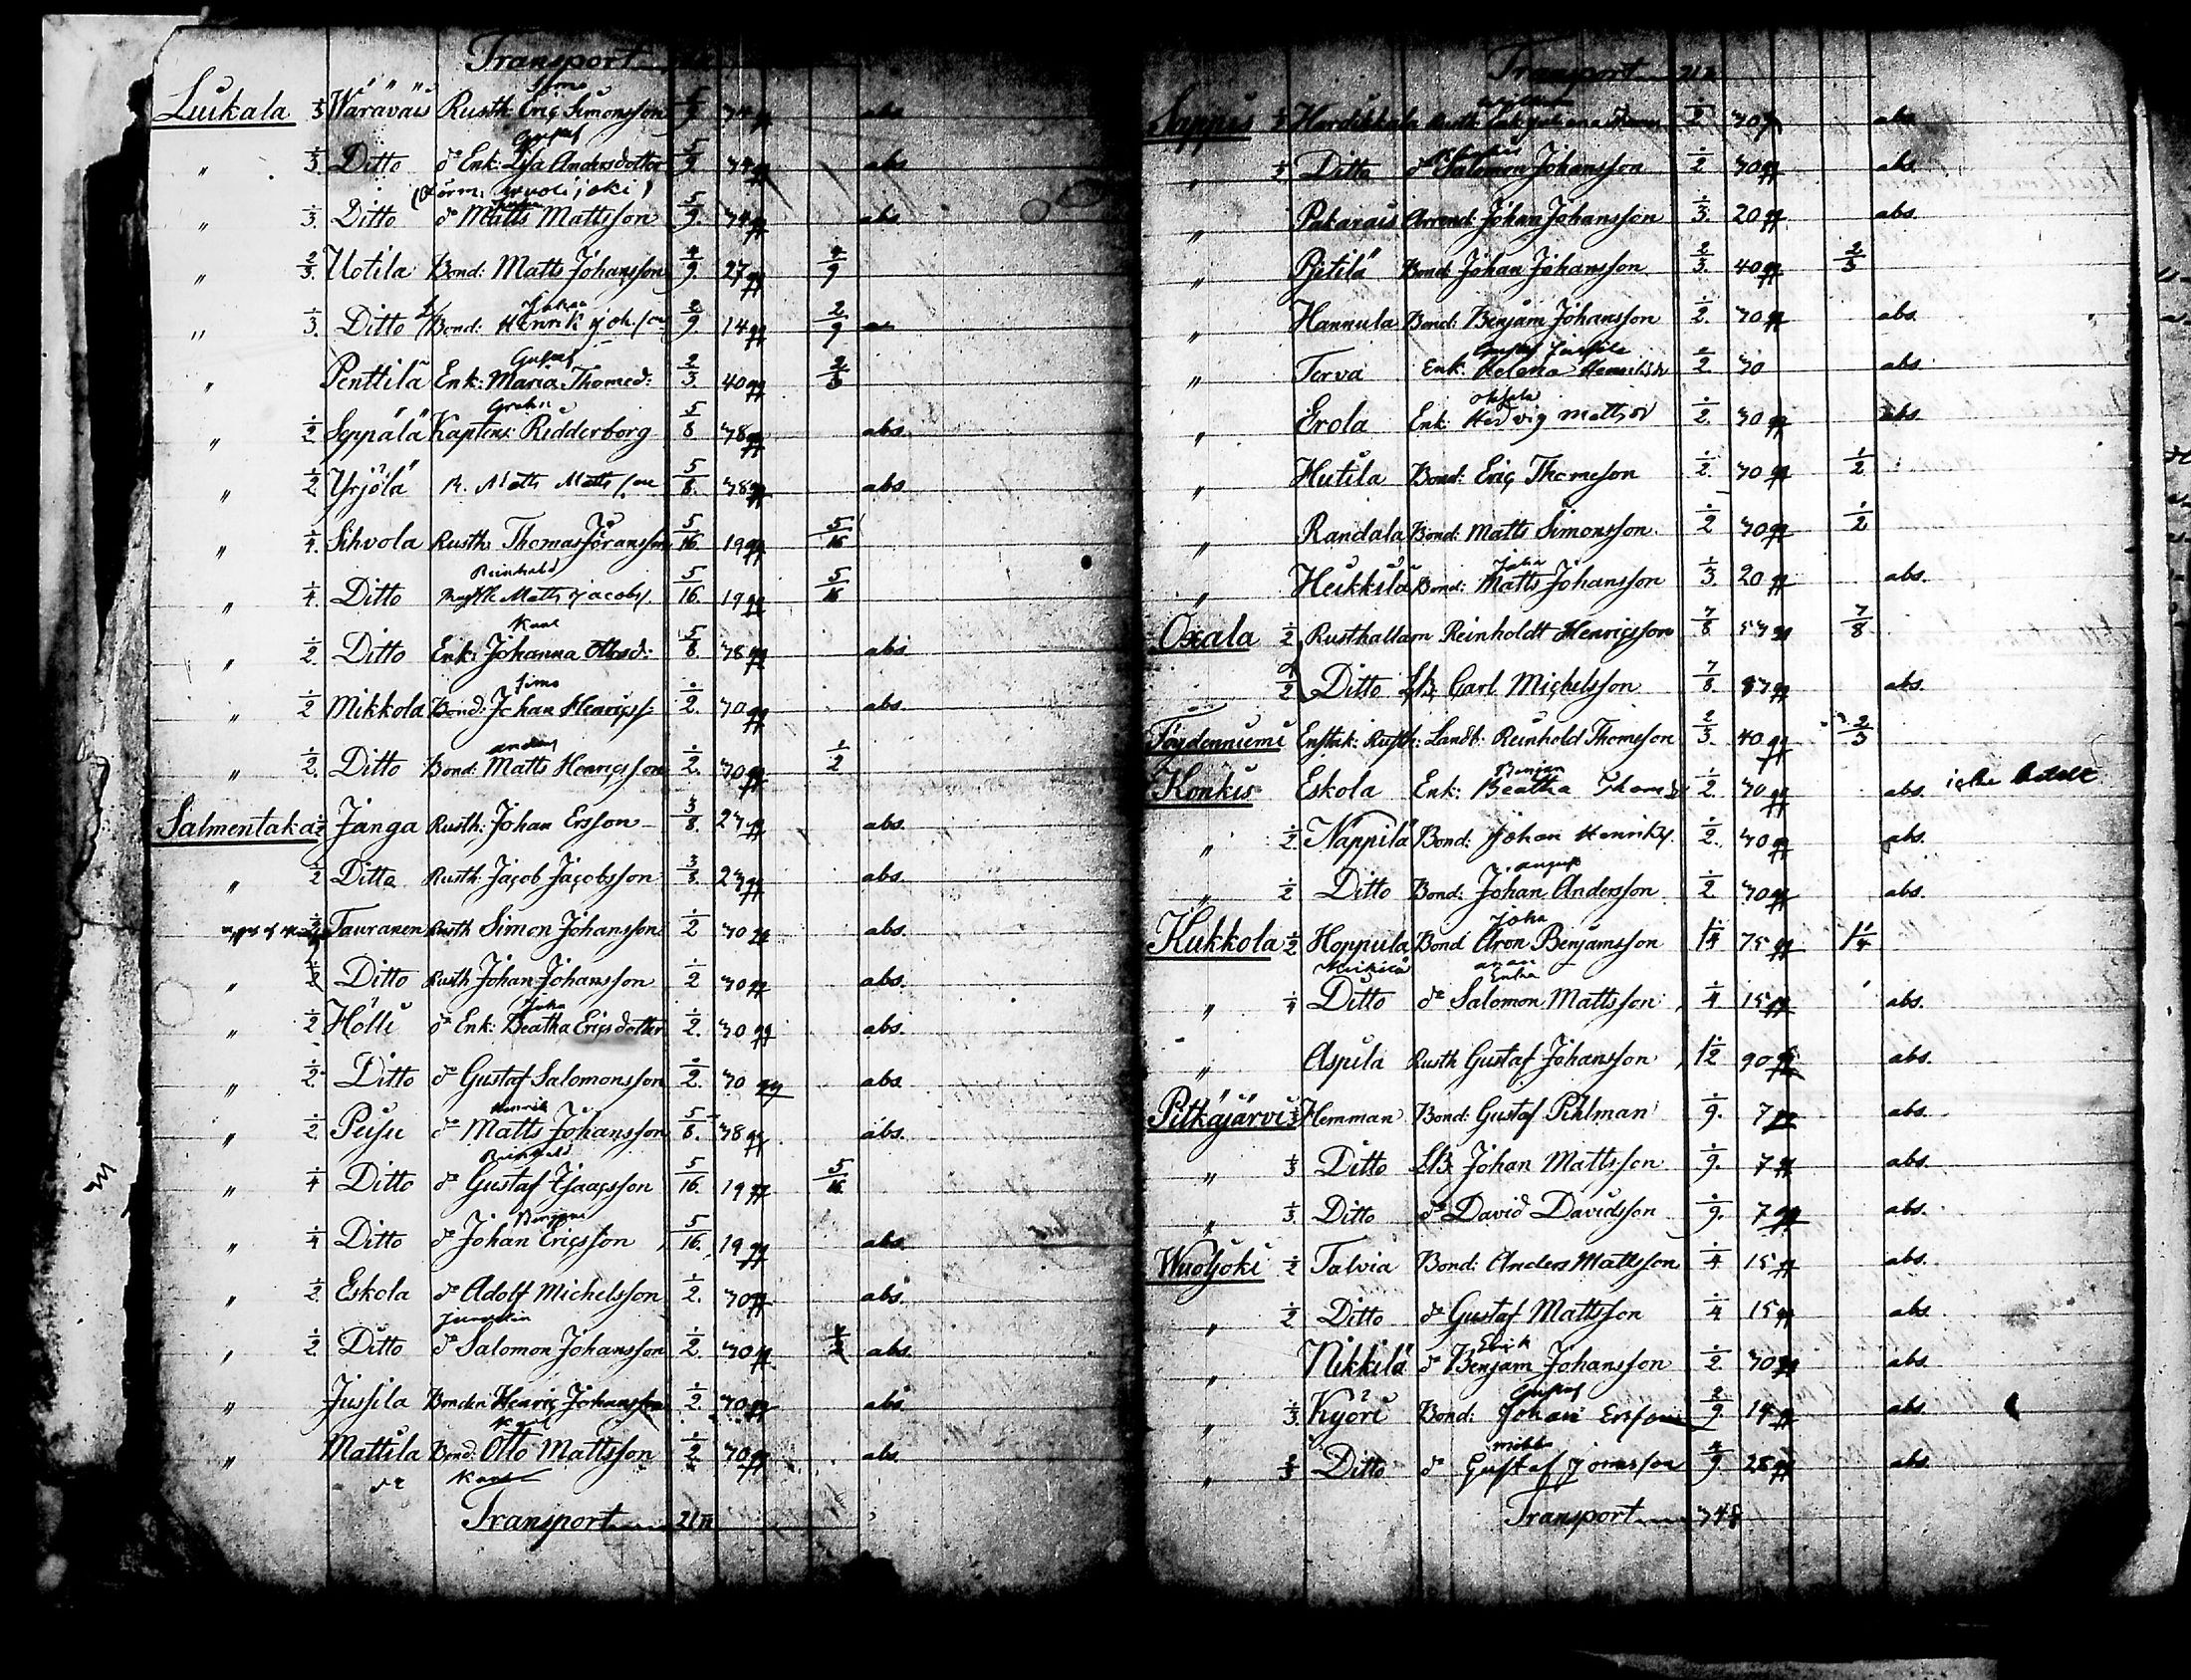 Transport
Simo
Luikala 1/3 Wäräväis Rusth: Eriç Simonsson 5/9 34 abs.
Gustaf
" 1/3 Ditto do Enk: Lisa Andersdotter 5/9 34 abs
" 1/3. Ditto do Matts Mattsson 5/9. 34 abs.
" 2/3. Uotila Bond: Matts Johansson 4/9 27 4/9
Johan
" 1/3. Ditto Bond: Henrik Joh:son 2/9 14 2/9
Gustaf
" Penttilä Enk: Maria Thomed: 2/3 40 2/3
" 1/2 Seppälä Kaptens Ridderborg 5/8 38 abs.
" 1/2 Yrjölä R. Matts Mattsson 5/8. 38 abs.
" 1/4. Sihvola Rusth: Thomas Jöransson 5/16. 19 5/16
Reinhold
" 1/4. Ditto Matts Jacobs. 5/16. 19 5/16
Kaal
" 1/2. Ditto Enk: Johanna Ottosd: 5/8 38 abs
Simo
" 1/2 Mikkola Bond: Johan Henriçss: 1/2. 30 abs.
anders
" 1/2. Ditto Bond: Matts Henriçsson 1/2. 30 1/2
Salmentaka 1/2 Janga Rusth: Johan Ersson 3/8. 23 abs.
" 1/2 Ditto Rusth: Jaçob Jaçobsson 3/8. 23 abs.
1/2 Tauranen Rusth Simon Johansson 1/2 30 abs.
" 1/2 Ditto Rusth Johan Johansson 1/2 30 abs.
Juha
" 1/2 Hölli do Enk: Beatha Eriçsdotter 1/2. 30 abs.
" 1/2. Ditto do Gustaf Salomonsson 1/2. 30 abs.
Henrik
" 1/2. Peiju do Matts Johansson 5/8. 38 abs.
Reinhold
" 1/4 Ditto do Gustaf Isaaçsson 5/16. 19 5/16.
" 1/4 Ditto do Johan Eriçsson 5/16. 19 abs.
" 1/2. Eskola do Adolf Michelsson 1/2. 30 abs.
" 1/2. Ditto do Salomon Johansson 1/2. 30 abs.
" Jussila Bonden Henriç Johansson 1/2. 30 abs.
" Mattila Bond: Otto Mattsson 1/2. 30 abs.
Transport
Transport
Sappis 1/2 Hardikkala 1/2 30 abs.
" 1/2 Ditto do Salomon Johansson 1/2 30 abs.
" Pakarais Arrend: Johan Johansson 1/3. 20 abs.
" Pjetilä Bond: Johan Johansson 2/3. 40 2/3
" Hannula Bond: Benjam Johansson 1/2. 30 abs.
" Terva Enk: Helena 1/2. 30 abs.
" Erola Enk: Hedvig Mattsd 1/2. 30 abs.
" Hutila Bond: Eriç Thomeson 1/2. 30 1/2
" Randala Bond: Matts Simonsson. 1/2 30 1/2
Juha
" Heikkilä Bond: Matts Johansson 1/3. 20 abs.
Oxala 1/2 Rusthallarn Reinholdt Henriçsson 7/8 53 7/8
1/2 Ditto LB: Carl Miçhelsson 7/8. 53 abs.
Töydenniemi Enstak: Rusth: Landb: Reinhold Thomsson 2/3. 40 2/3
Konkis Eskola Enk: Beatha Thomsd 1/2. 30 abs. icke betalt
" 1/2 Näppilä Bond: Johan Henriks. 1/2. 30 abs.
J. august
" 1/2 Ditto Bond: Johan Andersson 1/2 30 abs.
Juha
Kukkola 1/2 Hoppula Bond Aron Benjamsson 1 1/4 75 1 1/4
" 1/4 Ditto do Salomon Mattsson 1/4 15 abs.
" Aspila Rusth Gustaf Johansson 1 1/2 90 abs.
Pitkäjärvi 1/3 Hemman Bond: Gustaf Pihlman 1/9. 7 abs.
" 1/3 Ditto LB: Johan Mattsson 1/9. 7 abs.
" 1/3 Ditto do David Davidsson 1/9. 7 abs.
Wuoljoki 1/2 Talvia Bond: Anders Mattsson 1/4 15 abs.
" 1/2 Ditto do Gustaf Mattsson 1/4 15 abs.
Erik
" Nikkilä do Benjam Johansson 1/2. 30 abs.
Gustaf
" 1/3. Kyöri Bond: Johan Ersson 2/9. 14 abs.
" 2/3 Ditto do Gustaf Jonasson 4/9 28 abs.
Transport